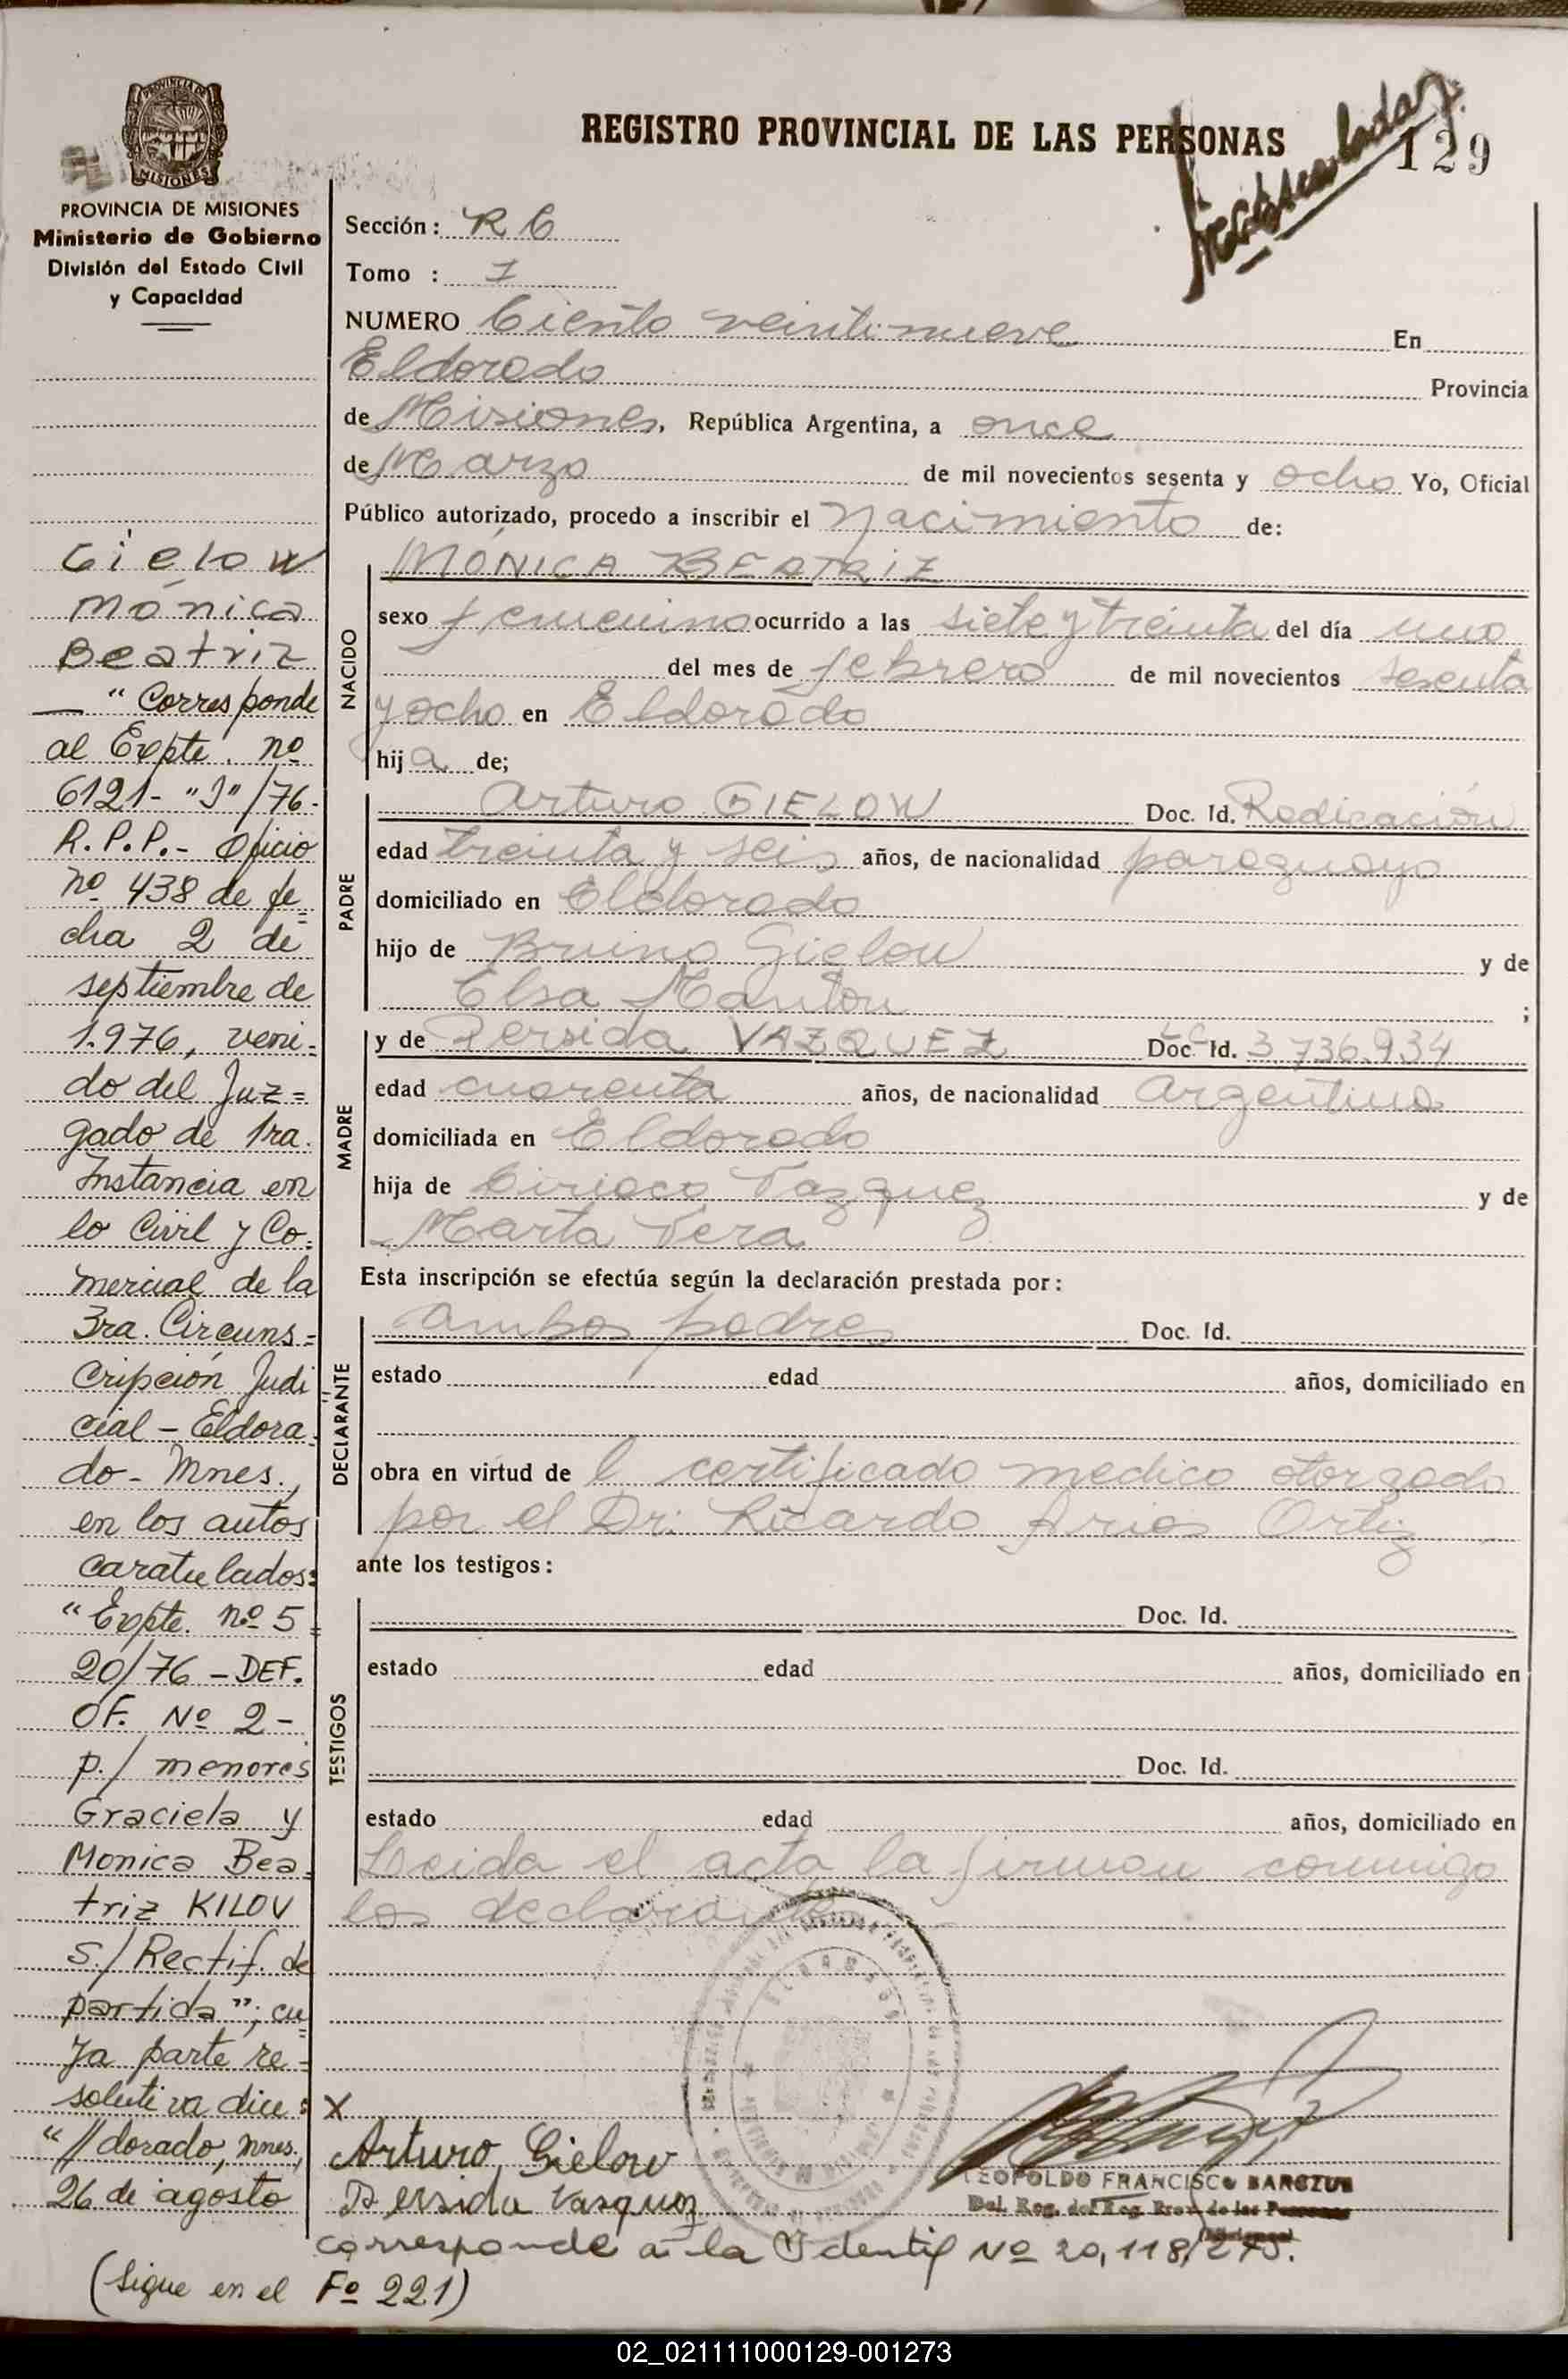 PROVINCIA DE
MISIONES
PROVINCIA DE MISIONES
Ministerio de Gobierno
División del Estado Civil
y Capacidad
REGISTRO PROVINCIAL DE LAS PERSONAS
129
Sección: R C
Tomo : I
NUMERO Ciento veintinueve En
Eldorado Provincia
de Misiones, República Argentina, a once
de Marzo de mil novecientos sesenta y ocho Yo, Oficial
Público autorizado, procedo a inscribir el Nacimiento de:
NACIDO
MÓNICA BEATRIZ
sexo femenino ocurrido a las siete y treinta del día uno
del mes de febrero de mil novecientos sesenta
y ocho en Eldorado
hij a de;
PADRE
Arturo GIELOW Doc. Id. Radicación
edad treinta y seis años, de nacionalidad paraguayo
domiciliado en Eldorado
hijo de Bruno Gielow y de
Elsa Manton ;
MADRE
y de Persida VAZQUEZ Doc. Id. LC 3 736.934
edad cuarenta años, de nacionalidad Argentina
domiciliada en Eldorado
hija de Ciriaco Vazquez y de
Marta Vera
Esta inscripción se efectúa según la declaración prestada por:
DECLARANTE
Ambos padres Doc. Id.
estado edad años, domiciliado en
obra en virtud de l certificado medico otorgado
por el Dr. Ricardo Arios Ortiz
ante los testigos:
TESTIGOS
Doc. Id.
estado edad años, domiciliado en
Doc. Id.
estado edad años, domiciliado en
Leida el acta, la firman conmigo
los declarantes
X
Arturo Gielow
Persida Vasquez
LEOPOLDO FRANCISCO
Del. Reg. del Reg. Prov. de las Personas
corresponde a la Identif Nº 20,118/275.
Gielow
Mónica
Beatriz
— "Corresponde
al Expte. nº
6121-"J"/76-
R.P.P.- Oficio
nº 438 de fe=
cha 2 de
septiembre de
1.976, veni=
do del Juz=
gado de 1ra.
Instancia en
lo Civil y Co=
mercial de la
3ra. Circuns=
cripción Judi
cial - Eldora=
do - Mnes.,
en los autos
caratulados:
"Expte. nº 5=
20/76 - DEF.
OF. Nº 2 -
p./ menores
Graciela y
Monica Bea=
triz KILOV
s./ Rectif. de
partida"; cu=
ya parte re=
solutiva dice:
"//dorado, Mnes.,
26 de agosto
(Sigue en el Fº 221)
02_021111000129-001273